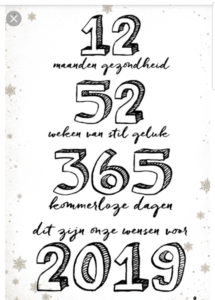 12
maanden gezondheid
52
weken van stil geluk
365
kommerloze dagen
dit zijn onze wensen voor
2019